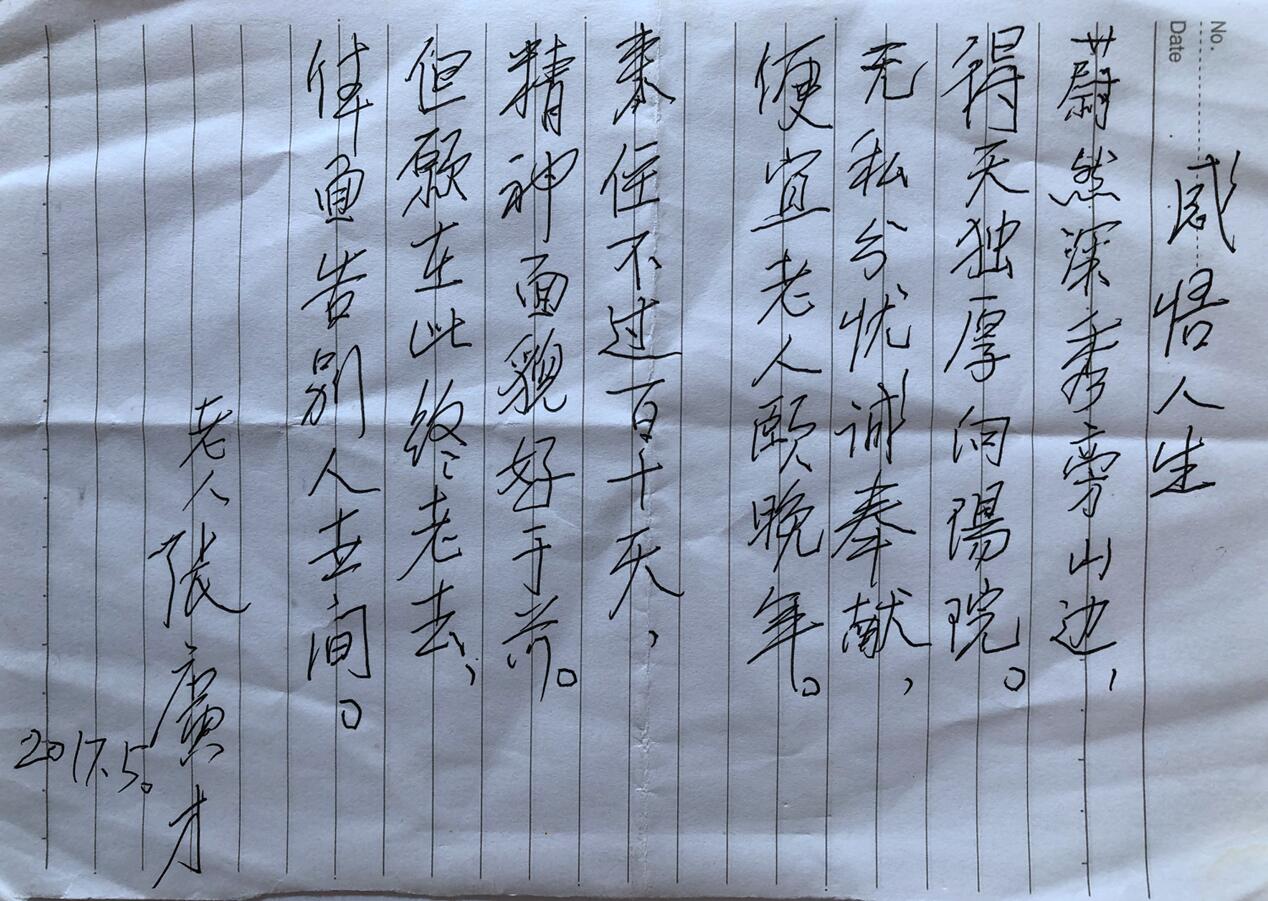 No.
Date
感悟人生
蔚然深秀旁山边，
得天独厚向陽院。
无私分忧诚奉献，
便宜老人颐晚年。
来住不过百十天，
精神面貌好于前。
但愿在此终老去，
体面告别人世间。
老人 张廣才
2017.5.